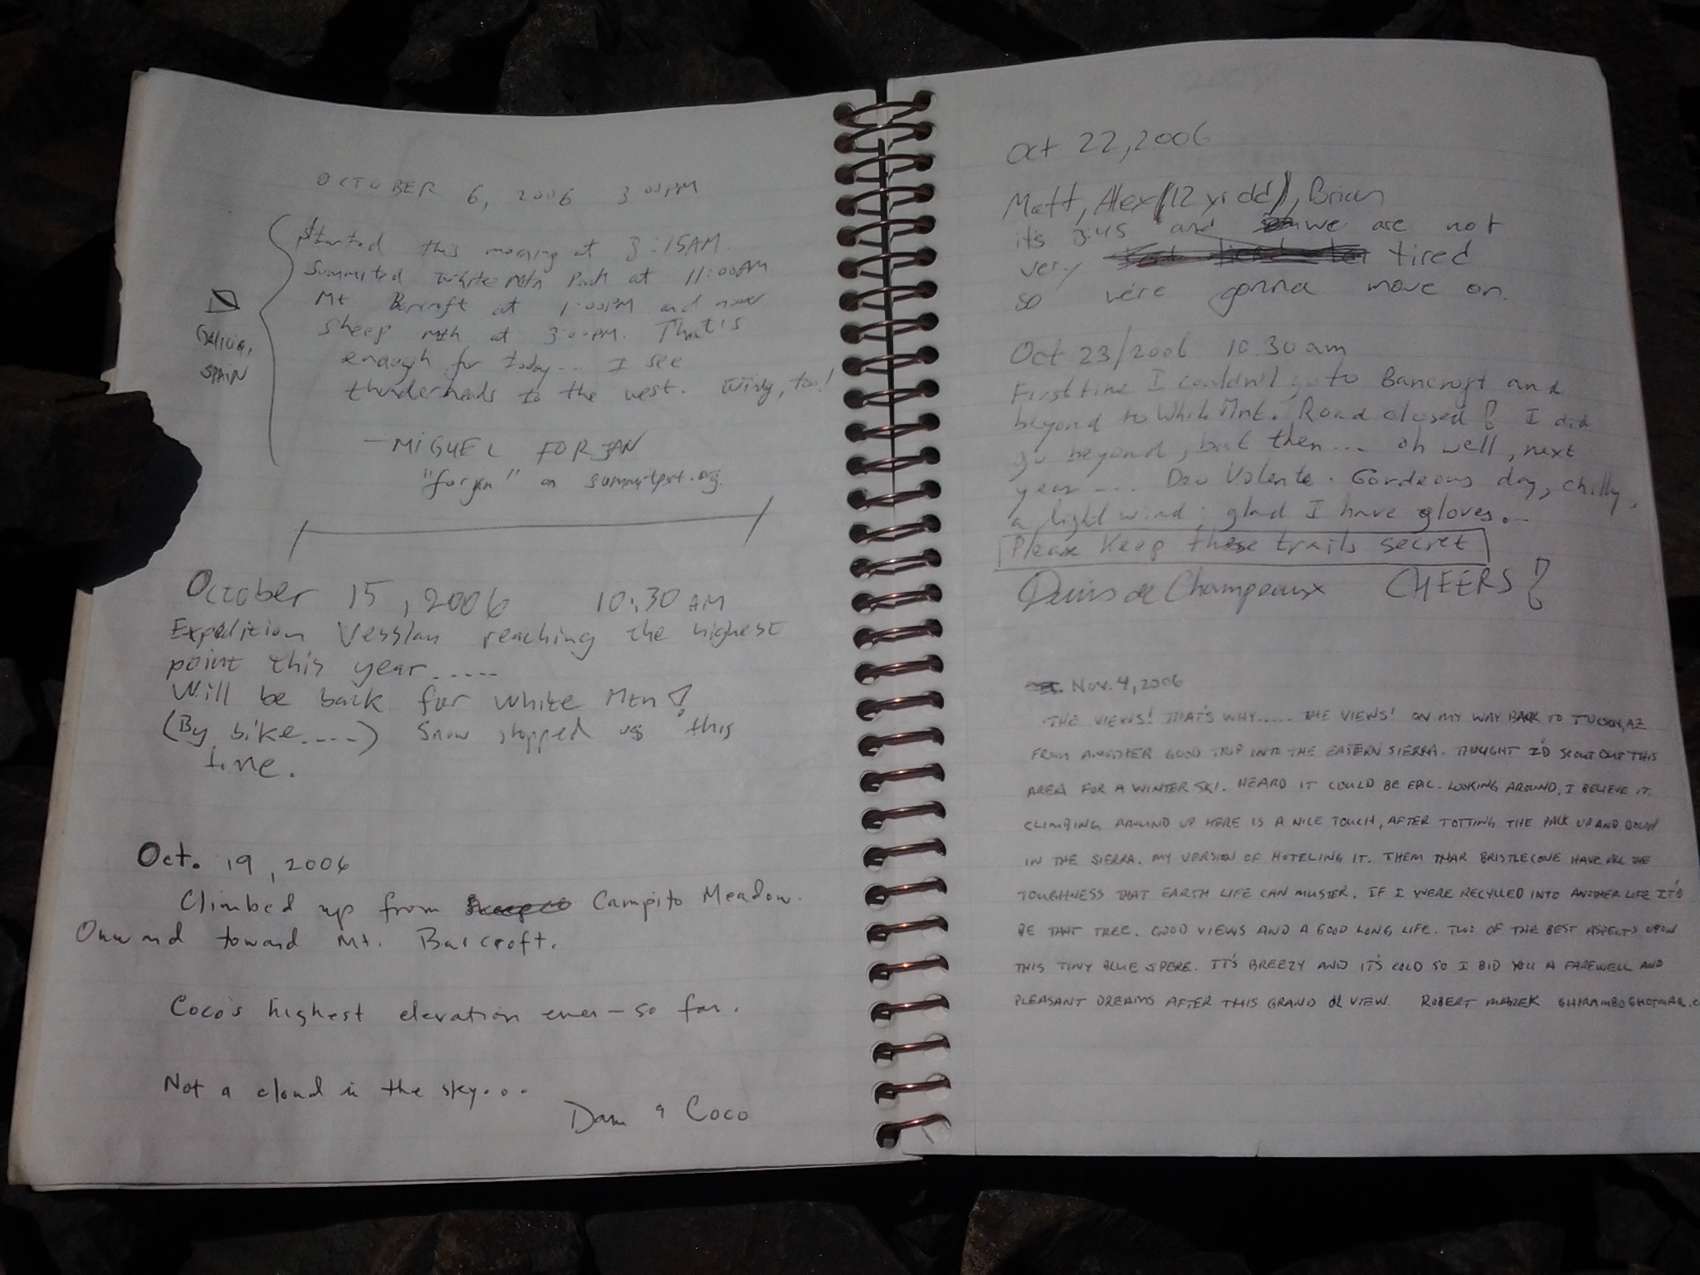 OCTOBER 6, 2006 3:00PM
Started this morning at 3:15AM.
Summited White Mtn Peak at 11:00AM
Mt Barcroft at 1:00PM and now
Sheep Mtn at 3:00PM. That's
enough for today... I see
thunderheads to the west. Windy, too!
GALICIA,
SPAIN
—MIGUEL FORJAN
"forjan" on summitpost.org.
October 15, 2006 10:30 AM
Expedition Vesslan reaching the highest
point this year.....
Will be back for White Mtn!
(By bike....) Snow stopped us this
time.
Oct. 19, 2006
Climbed up from Campito Meadow.
Onward toward Mt. Barcroft.
Coco's highest elevation ever — so far.
Not a cloud in the sky...
Dam & Coco
Oct 22, 2006
Matt, Alex (12 yr old), Brian
it's 3:45 and we are not
very tired
so we're gonna move on.
Oct 23/2006 10.30 am
First time I couldn't go to Bancroft and
beyond to White Mnt. Road closed! I did
go beyond, but then... oh well, next
year.... Deo Volente. Gordeous day, chilly,
a light wind; glad I have gloves...
Please keep these trails secret
Denis de Champeaux CHEERS!
Nov. 4, 2006
THE VIEWS! THAT'S WHY..... THE VIEWS! ON MY WAY BACK TO TUCSON, AZ
FROM ANOTHER GOOD TRIP INTO THE EASTERN SIERRA. THOUGHT I'D SCOUT OUT THIS
AREA FOR A WINTER SKI. HEARD IT COULD BE EPIC. LOOKING AROUND, I BELIEVE IT.
CLIMBING AROUND UP HERE IS A NICE TOUCH, AFTER TOTTING THE PACK UP AND DOWN
IN THE SIERRA. MY VERSION OF HOTELING IT. THEM THAR BRISTLECONE HAVE ALL THE
TOUGHNESS THAT EARTH LIFE CAN MUSTER. IF I WERE RECYCLED INTO ANOTHER LIFE IT'D
BE THAT TREE. GOOD VIEWS AND A GOOD LONG LIFE. TWO OF THE BEST ASPECTS UPON
THIS TINY BLUE SPERE. IT'S BREEZY AND IT'S COLD SO I BID YOU A FAREWELL AND
PLEASANT DREAMS AFTER THIS GRAND OL VIEW. ROBERT